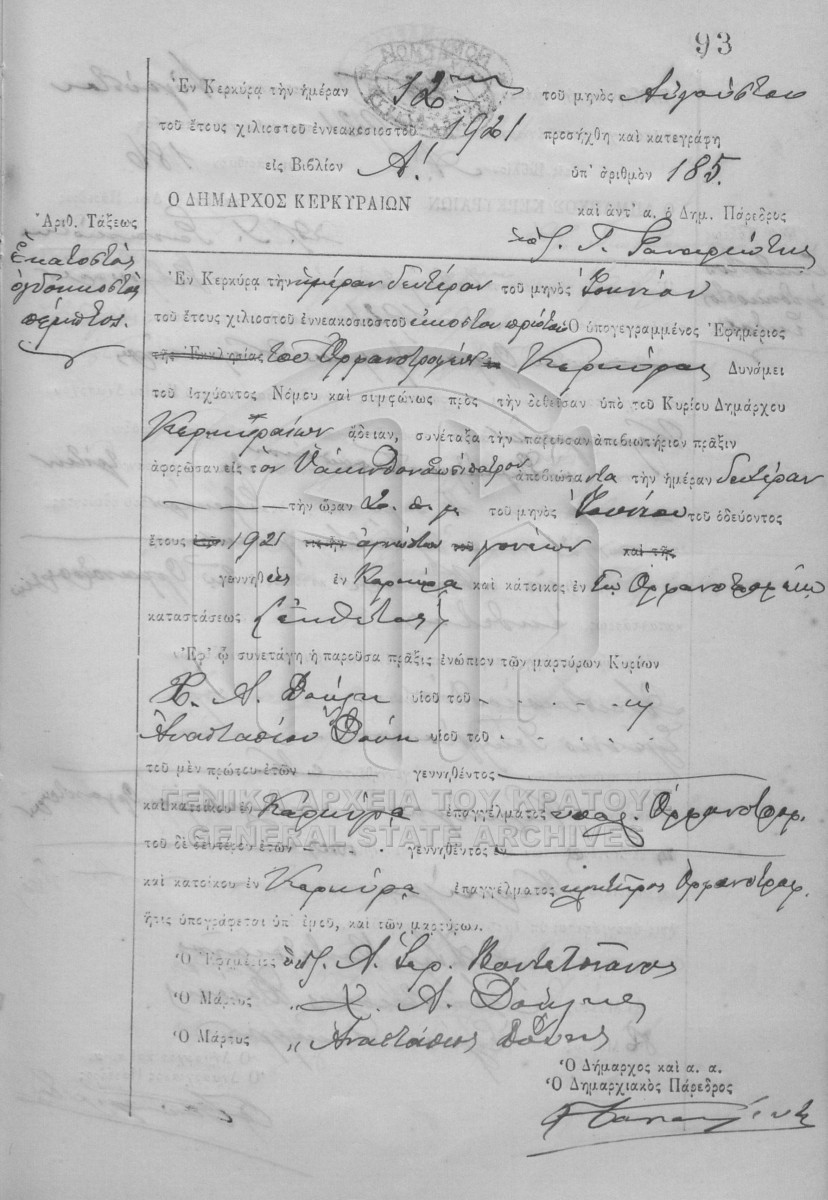 93
Ἐν Κερκύρᾳ τὴν ἡμέραν 12 τοῦ μηνὸς Αὐγούστου
τοῦ ἔτους χιλιοστοῦ ἐννεακοσιοστοῦ 1921 προσήχθη καὶ κατεγράφη
εἰς Βιβλίον Α! ὑπ' ἀριθμὸν 185.
Ο ΔΗΜΑΡΧΟΣ ΚΕΡΚΥΡΑΙΩΝ
καὶ ἀντ' α. ὁ Δημ. Πάρεδρος
Ἀριθ. Τάξεως
Ἑκατοστὸς
ὀγδοηκοστὸς
πέμπτος.
Ἐν Κερκύρᾳ τὴν ἡμέραν δευτέραν τοῦ μηνὸς Ἰουνίου
τοῦ ἔτους χιλιοστοῦ ἐννεακοσιοστοῦ εἰκοστοῦ πρώτου Ὁ ὑπογεγραμμένος Ἐφημέριος
τῆς Ἐκκλησίας τοῦ Ὀρφανοτροφείου Κερκύρας Δυνάμει
τοῦ ἰσχύοντος Νόμου καὶ συμφώνως πρὸς τὴν δοθεῖσαν ὑπὸ τοῦ Κυρίου Δημάρχου
Κερκυραίων ἄδειαν, συνέταξα τὴν παροῦσαν ἀποβιωτήριον πρᾶξιν
ἀφορῶσαν εἰς τὸν Ὑάκινθον ἀποβιώσαντα τὴν ἡμέραν δευτέραν
τὴν ὥραν 2 π.μ. τοῦ μηνὸς Ἰουνίου τοῦ ὁδεύοντος
ἔτους 1921 ἀγνώστων γονέων καὶ τῆς
γεννηθεὶς ἐν Κερκύρᾳ καὶ κάτοικος ἐν τῷ Ὀρφανοτροφείῳ
καταστάσεως (ἔκθετος)
Ἐφ' ᾧ συνετάγη ἡ παροῦσα πρᾶξις ἐνώπιον τῶν μαρτύρων Κυρίων
Χ. Α. Δούκη υἱοῦ τοῦ
Ἀναστασίου Δούκη υἱοῦ τοῦ
τοῦ μὲν πρώτου ἐτῶν γεννηθέντος
καὶ κατοίκου ἐν Κερκύρᾳ ἐπαγγέλματος ὑπαλ. Ὀρφανοτροφ.
ΓΕΝΙΚΑ ΑΡΧΕΙΑ ΤΟΥ ΚΡΑΤΟΥΣ
GENERAL STATE ARCHIVES
τοῦ δὲ δευτέρου ἐτῶν γεννηθέντος
καὶ κατοίκου ἐν Κερκύρᾳ ἐπαγγέλματος Ὀρφανοτροφ.
ἥτις ὑπογράφεται ὑπ' ἐμοῦ, καὶ τῶν μαρτύρων.
Ὁ Ἐφημέριος
Ὁ Μάρτυς „ Χ. Α. Δούκης
Ὁ Μάρτυς „ Ἀναστάσιος Δούκης
Ὁ Δήμαρχος καὶ α. α.
Ὁ Δημαρχιακὸς Πάρεδρος